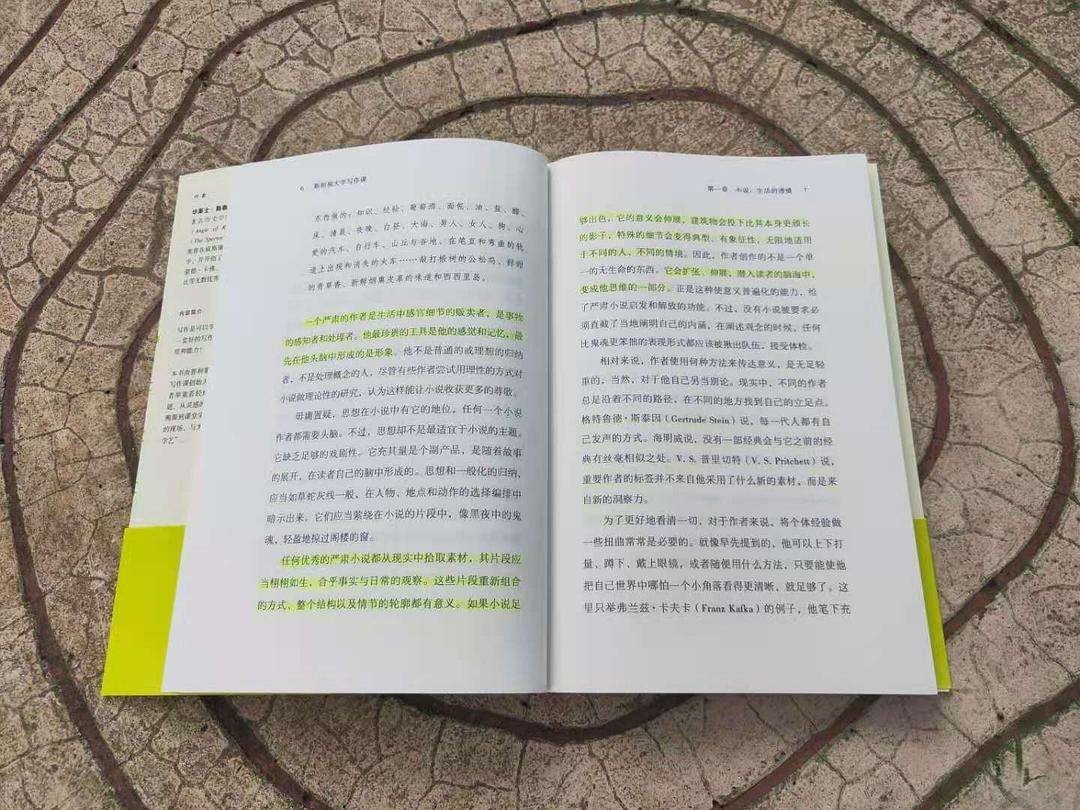 作者
华莱士·斯泰
(Angle of R
(The Specta
内容简介
写作是可以学
6 斯坦福大学写作课
东西做的:知识、经验、葡萄酒、面包、油、盐、醋、
床、清晨、夜晚、白昼、大海、男人、女人、狗、心
爱的汽车、自行车、山丘与谷地、在笔直和弯曲的轨
道上出现和消失的火车……敲打椴树的公松鸡、鲜甜
的青草香、新鲜烟熏皮革的味道和西西里岛。
一个严肃的作者是生活中感官细节的贩卖者,是事物
的感知者和处理者。他最珍贵的工具是他的感觉和记忆,最
先在他头脑中形成的是形象。他不是普通的或理想的归纳
者,不是处理概念的人,尽管有些作者尝试用理性的方式对
小说做理论性的研究,认为这样能让小说收获更多的尊敬。
毋庸置疑,思想在小说中有它的地位,任何一个小说
作者都需要头脑。不过,思想却不是最适宜于小说的主题。
它缺乏足够的戏剧性。它充其量是个副产品,是随着故事
的展开,在读者自己的脑中形成的。思想和一般化的归纳,
应当如草蛇灰线一般,在人物、地点和动作的选择编排中
暗示出来。它们应当萦绕在小说的片段中,像黑夜中的鬼
魂,轻盈地掠过阁楼的窗。
任何优秀的严肃小说都从现实中拾取素材,其片段应
当栩栩如生,合乎事实与日常的观察。这些片段重新组合
的方式,整个结构以及情节的轮廓都有意义。如果小说足
第一章 小说:生活的透镜 7
够出色,它的意义会伸展,建筑物会投下比其本身更颀长
的影子,特殊的细节会变得典型、有象征性,无限地适用
于不同的人,不同的情境。因此,作者创作的不是一个单
一的无生命的东西,它会扩张、伸展,潜入读者的脑海中,
变成他思维的一部分。正是这种使意义普遍化的能力,给
了严肃小说启发和解放的功能。不过,没有小说被要求必
须直截了当地阐明自己的内涵,在阐述观念的时候,任何
比鬼魂更笨他的表现形式都应该被揪出队伍,接受体检。
相对来说,作者使用何种方法来传达意义,是无足轻
重的,当然,对于他自己另当别论。现实中,不同的作者
总是沿着不同的路径,在不同的地方找到自己的立足点。
格特鲁德·斯泰因(Gertrude Stein)说,每一代人都有自
己发声的方式。海明威说,没有一部经典会与它之前的经
典有丝毫相似之处。V. S. 普里切特(V. S. Pritchett)说,
重要作者的标签并不来自他采用了什么新的素材,而是来
自新的洞察力。
为了更好地看清一切,对于作者来说,将个体经验做
一些扭曲常常是必要的。就像早先提到的,他可以上下打
量、蹲下、戴上眼镜,或者随便用什么方法,只要能使他
把自己世界中哪怕一个小角落看得更清晰,就足够了。这
里只举弗兰兹·卡夫卡(Franz Kafka)的例子,他笔下充